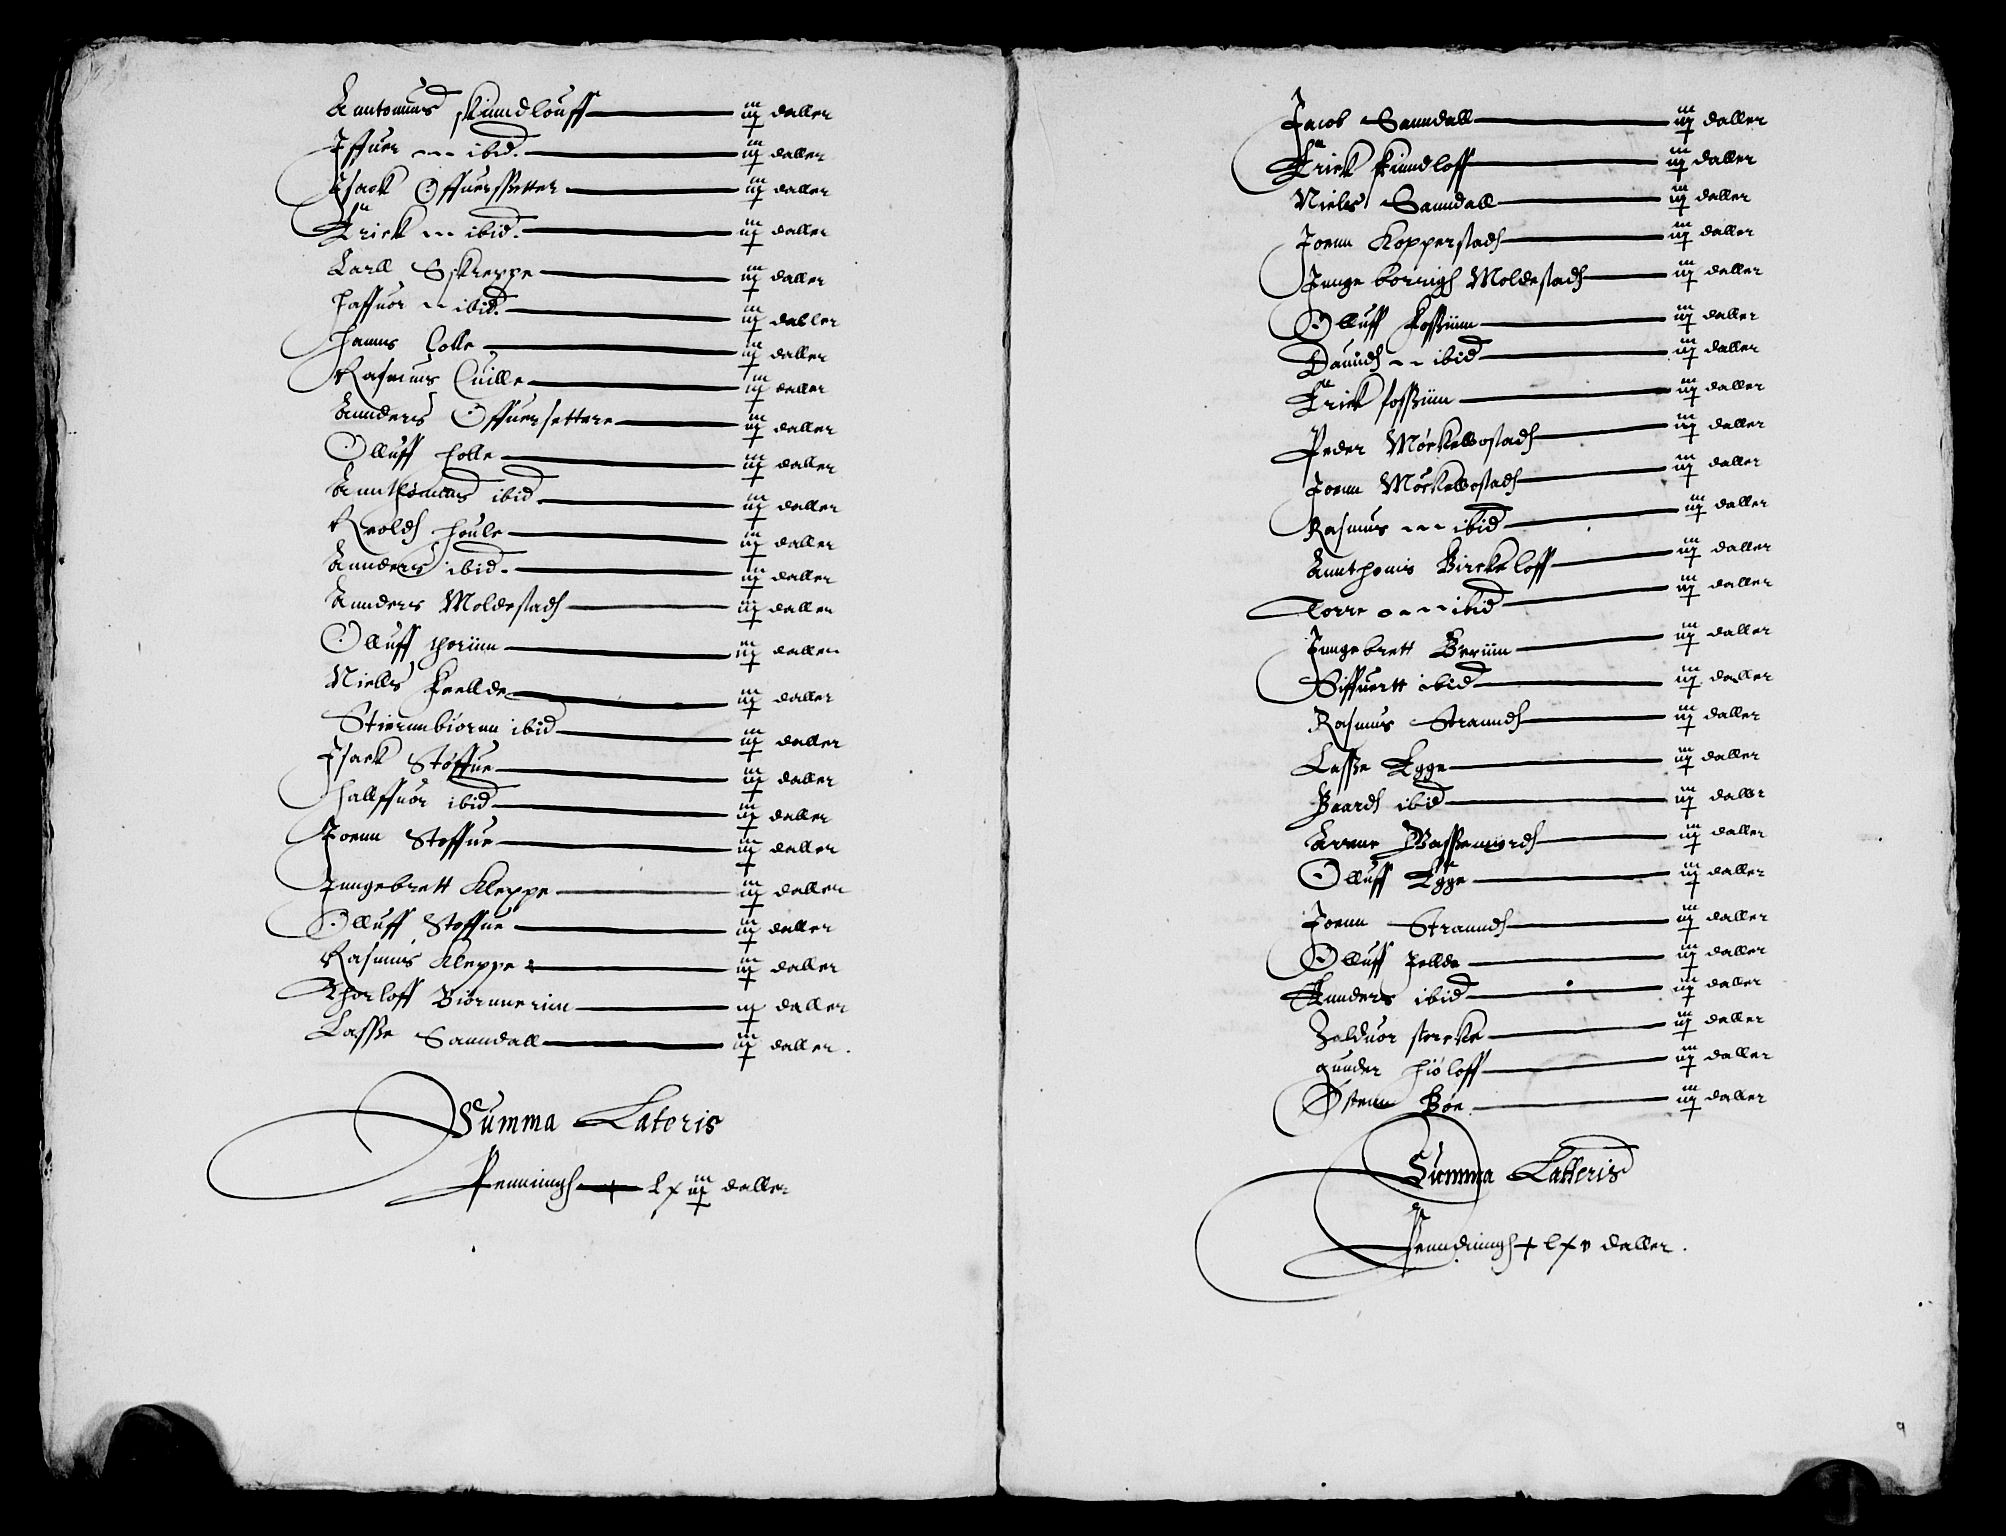 Anntonnius skiundlouff iij daller
Iffuer ibid. iij daller
Isack Offuerssetter iij daller
Erick ibid. iij daller
Carll Skreppe iij daller
Haffuor ibid. iij daller
Hanns Colle iij daller
Rasmus Cuille iij daller
Annders Offuersettere iij daller
Olluff Holle iij daller
Annthomius ibid iij daller
Reoldh Houle iij daller
Annders ibid. iij daller
Annders Moldestadh iij daller
Olluff Horiim iij daller
Niells Frellde iij daller
Stiernnbiornn ibid iij daller
Isack Støffue iij daller
Hallffuor ibid iij daller
Joenn Stoffue iij daller
Inngebrett Kleppe iij daller
Olluff Stoffue iij daller
Rasmus Kleppe iij daller
Thorloff Biornnerim iij daller
Lasse Sanndall iij daller.
Summa Lateris
Penningh lxiij daller
Jacob Sanndall iij daller
Erick skiundloff iij daller
Niels Sanndall iij daller
Joenn Kopperstadh iij daller
Inngeborrigh Moldestadh iij daller
Olluff Fossiim iij daller
Dauidh ibid iij daller
Erick fossiim iij daller
Peder Mörkelbostadh iij daller
Joenn Mörkelbostadh iij daller
Rasmus ibid iij daller
Annthonis Birckeloff iij daller
Torre ibid iij daller
Inngebrett Breiim iij daller
Siffuertt ibid iij daller
Rasmus Stranndh iij daller
Lasse Egge iij daller
Baardh ibid iij daller
Arnne Wassennördh iij daller
Olluff Egge iij daller
Joenn Stranndh iij daller
Olluff Hellde iij daller
Annders ibid iij daller
Halduor sterke iij daller
gunder Hiöloff iij daller
Østenn Böe iij daller
Summa Latteris
Penndningh lxv daller.